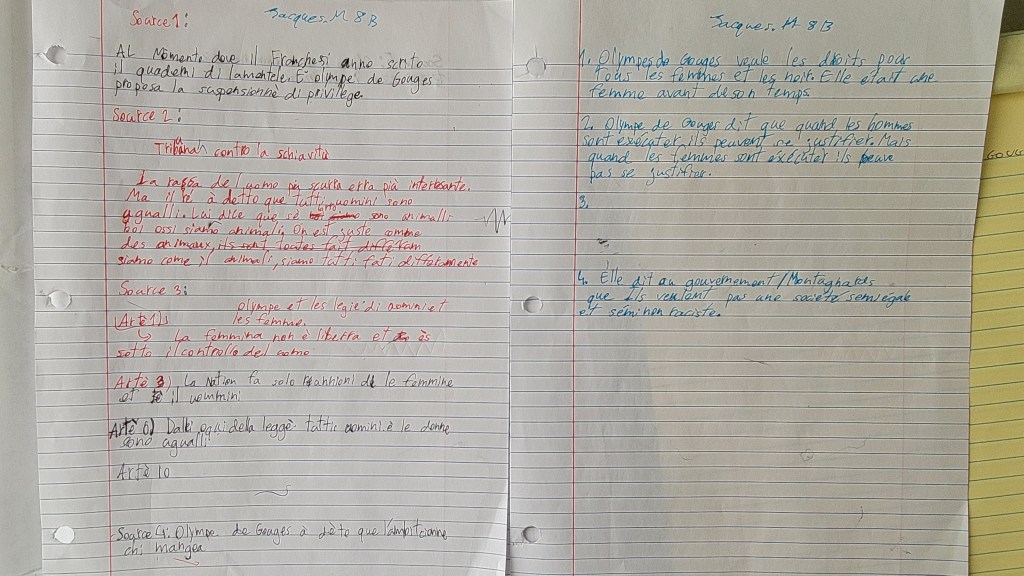 Source 1:
Jacques. M 8B
AL Momento dove il Franchesi anno scrito
il quaderni di lamantele. E olympe de Gouges
proposa la suspensionne di privilege.
Source 2:
Tribunah contro la schiavitù
La razza de l uomo più scura erra più interissante.
Ma il re à detto che tutti uomini sono
agualli. Lui dice que se sono animalli
noi ossi siamo animali. On est juste comme
des animaux,
siamo come il animali, siamo tutti fati differamente
Source 3:
Olympe et les legie di uomini et
les femme.
Arte 1)
La femmina non è liberra et ès
sotto il controllo del uomo
Arte 3) La Nation fa solo di le femmine
et il uommini
Artè 6) Dalli della leggè tutti uomini è le donne
sono agualli
Artè 10
Source 4: Olympe de Gouges à dèto que l'ambitionne
chi mangea
Jacques. M 8B
1. Olympes de Gouges veule les droits pour
tous les femmes et les noir. Elle etait une
femme avant de son temps.
2. Olympe de Gouges dit que quand les hommes
sont exécuter, ils peuvent se justifier. Mais
quand les femmes sont exécuter ils peuve
pas se justifier.
3.
4. Elle dit au gouvernement/Montagnards
que ils veulent pas une societé semiegale
et seminon raciste.